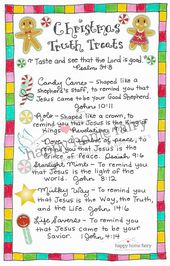 Christmas
Truth Treats
Taste and see that the Lord is good.
Psalm 34:8
Candy Canes - Shaped like a
shepherd's staff, to remind you that
Jesus came to be your Good Shepherd.
John 10:11
Rolo - Shaped like a crown, to
remind you that Jesus is the King of
Kings. Revelation
Dove - A symbol of peace, to
remind you that Jesus is the
Prince of Peace. Isaiah 9:6
Starlight Mints - To remind you
that Jesus is the light of the
world. John 8:12
Milky Way - To remind you
that Jesus is the Way, the Truth,
and the Life. John 14:6
Life Savers - To remind you
that Jesus came to be your
Savior. 1 John 4:14
happy home fairy